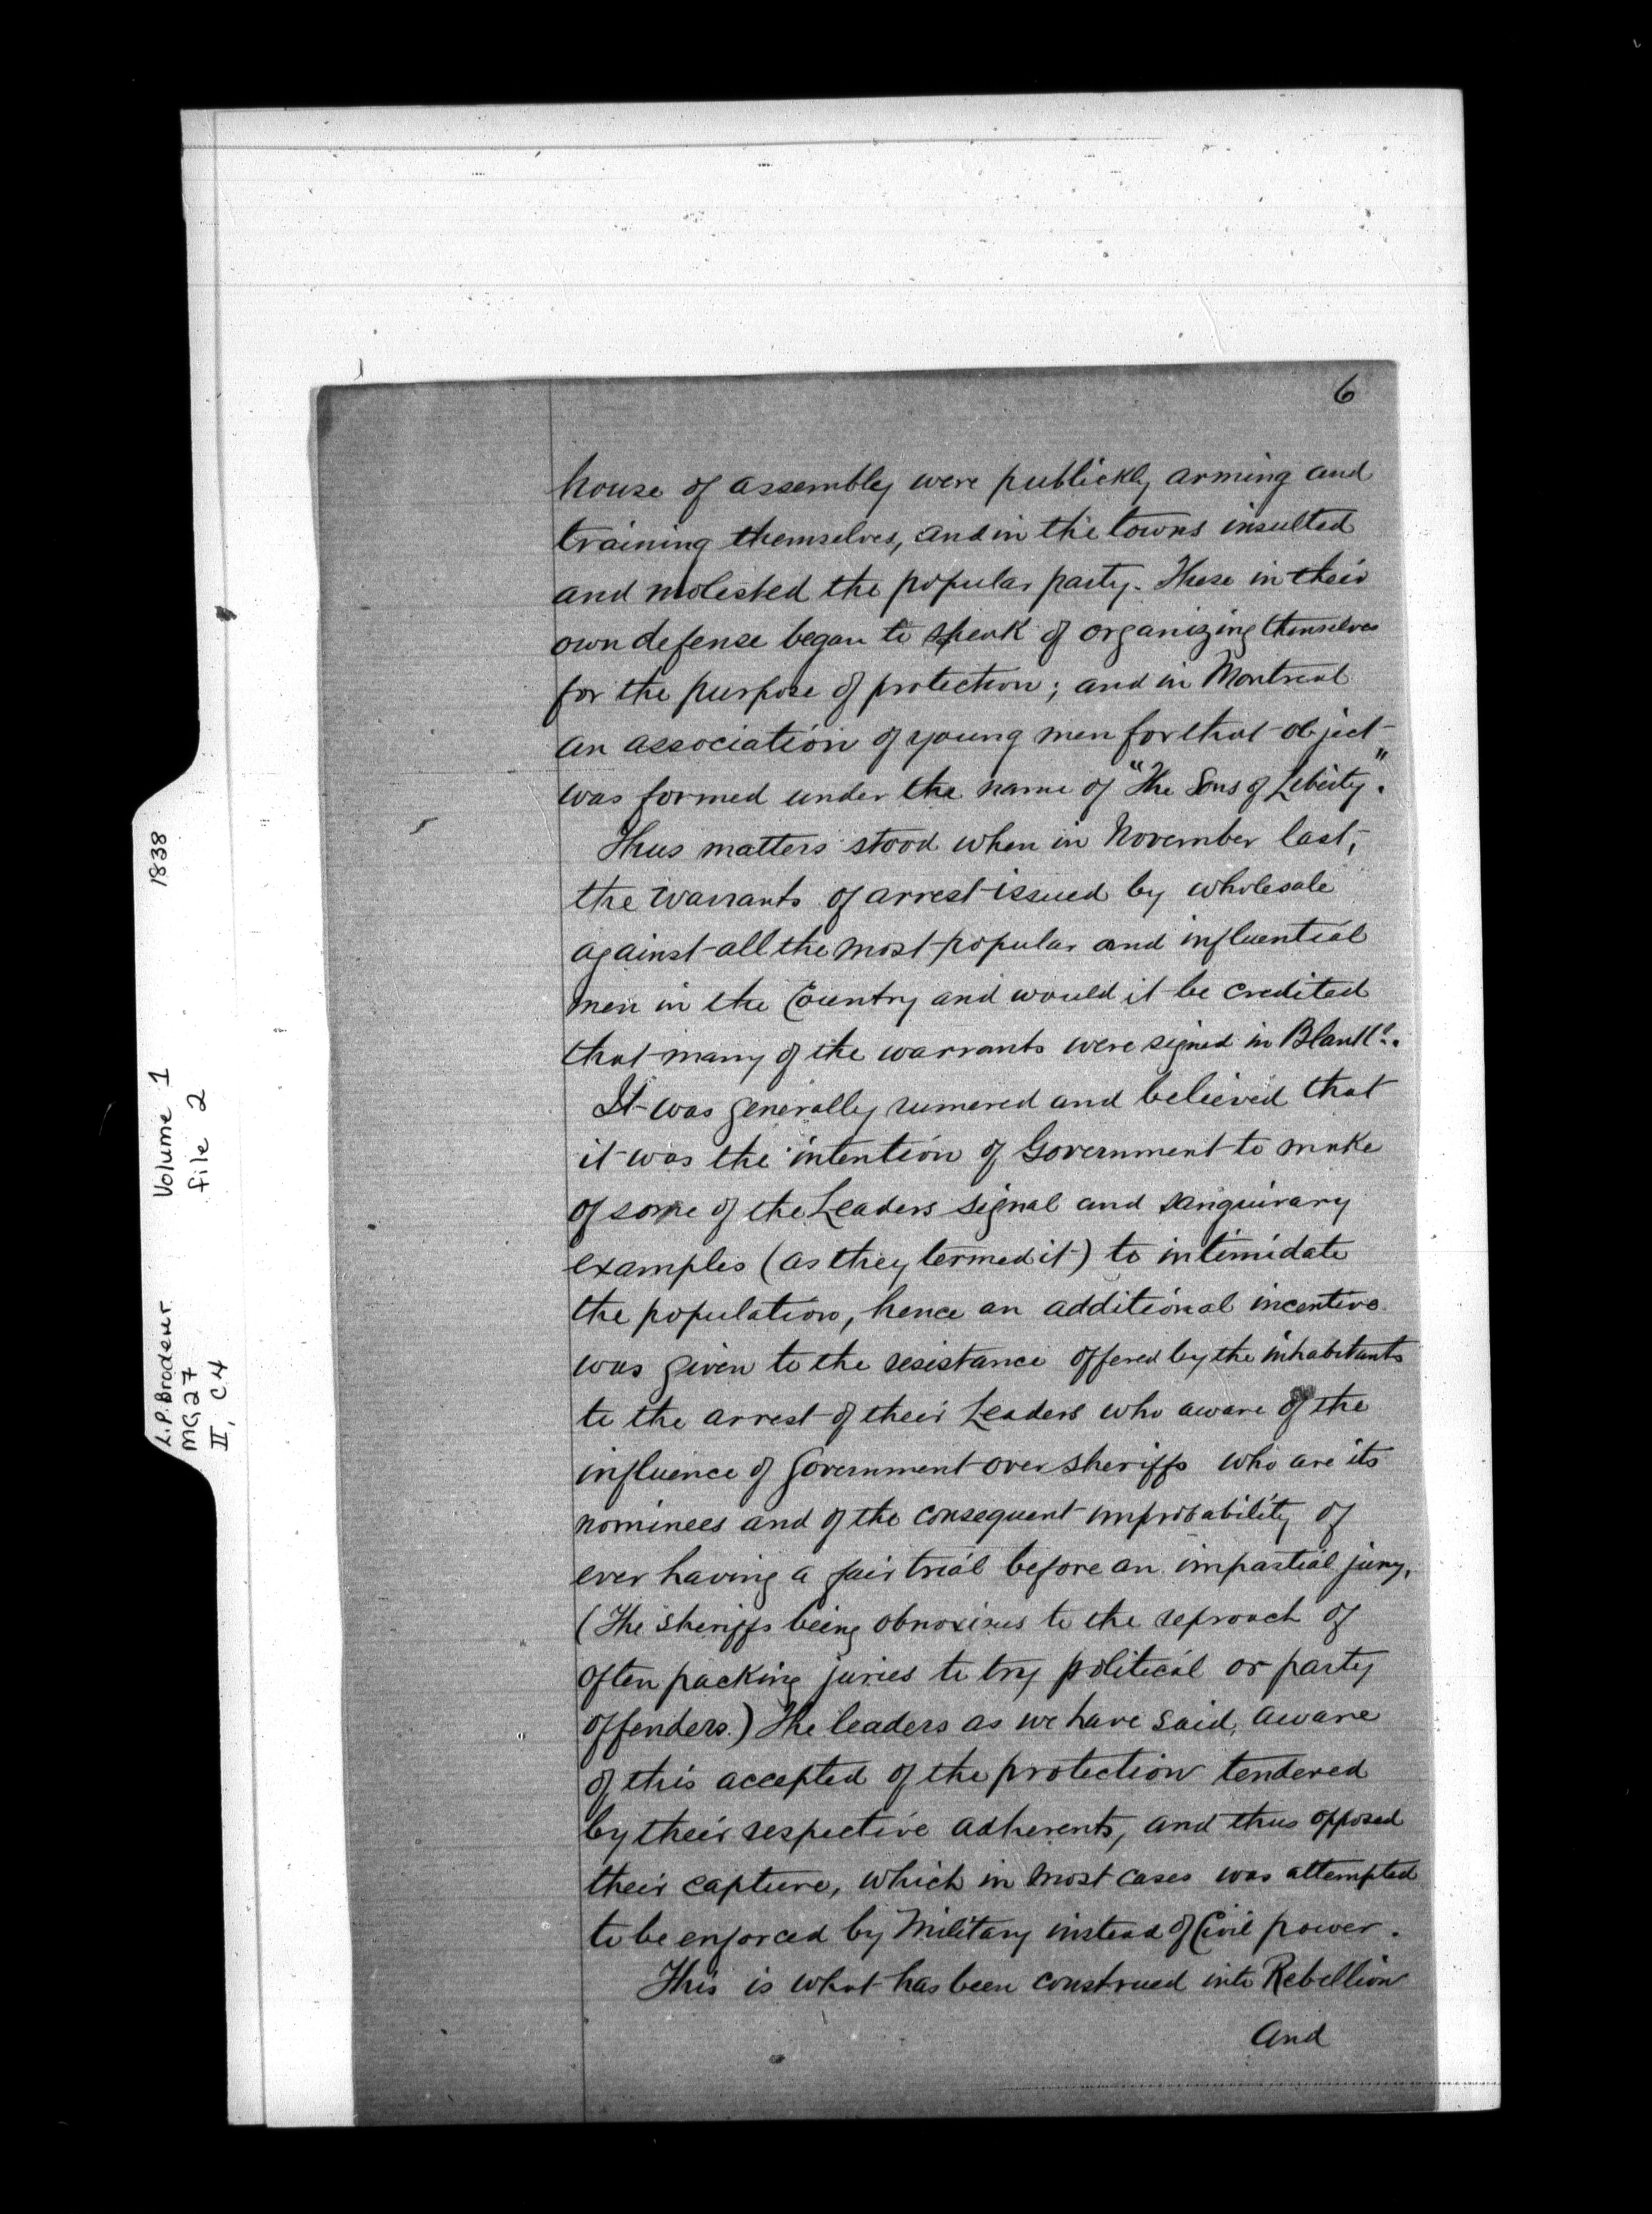 6
house of assembly were publickly arming and
training themselves, and in the towns insulted
and molested the popular party. These in their
own defense began to speak of organizing themselves
for the purpose of protection; and in Montreal
an association of young men for that object
was formed under the name of "The Sons of Liberty".
Thus matters stood when in November last,
the warrants of arrest issued by wholesale
against all the most popular and influential
men in the Country and would it be credited
that many of the warrants were signed in Blank?.
It was generally rumered and believed that
it was the intention of Government to make
of some of the Leaders signal and sanguinary
examples (as they termed it) to intimidate
the population, hence an additional incentive
was given to the resistance offered by the inhabitants
to the arrest of their Leaders who aware of the
influence of Government over sheriffs who are its
nominees and of the consequent improbability of
ever having a fair trial before an impartial jury,
(The sheriffs being obnoxious to the reproach of
often packing juries to try political or party
offenders.) The leaders as we have said, aware
of this accepted of the protection tendered
by their respective adherents, and thus opposed
their capture, which in most cases was attempted
to be enforced by Military instead of Civil power.
This is what has been construed into Rebellion
and
L.P. Brodeur Volume 1 1838
MG27 file 2
II, C4